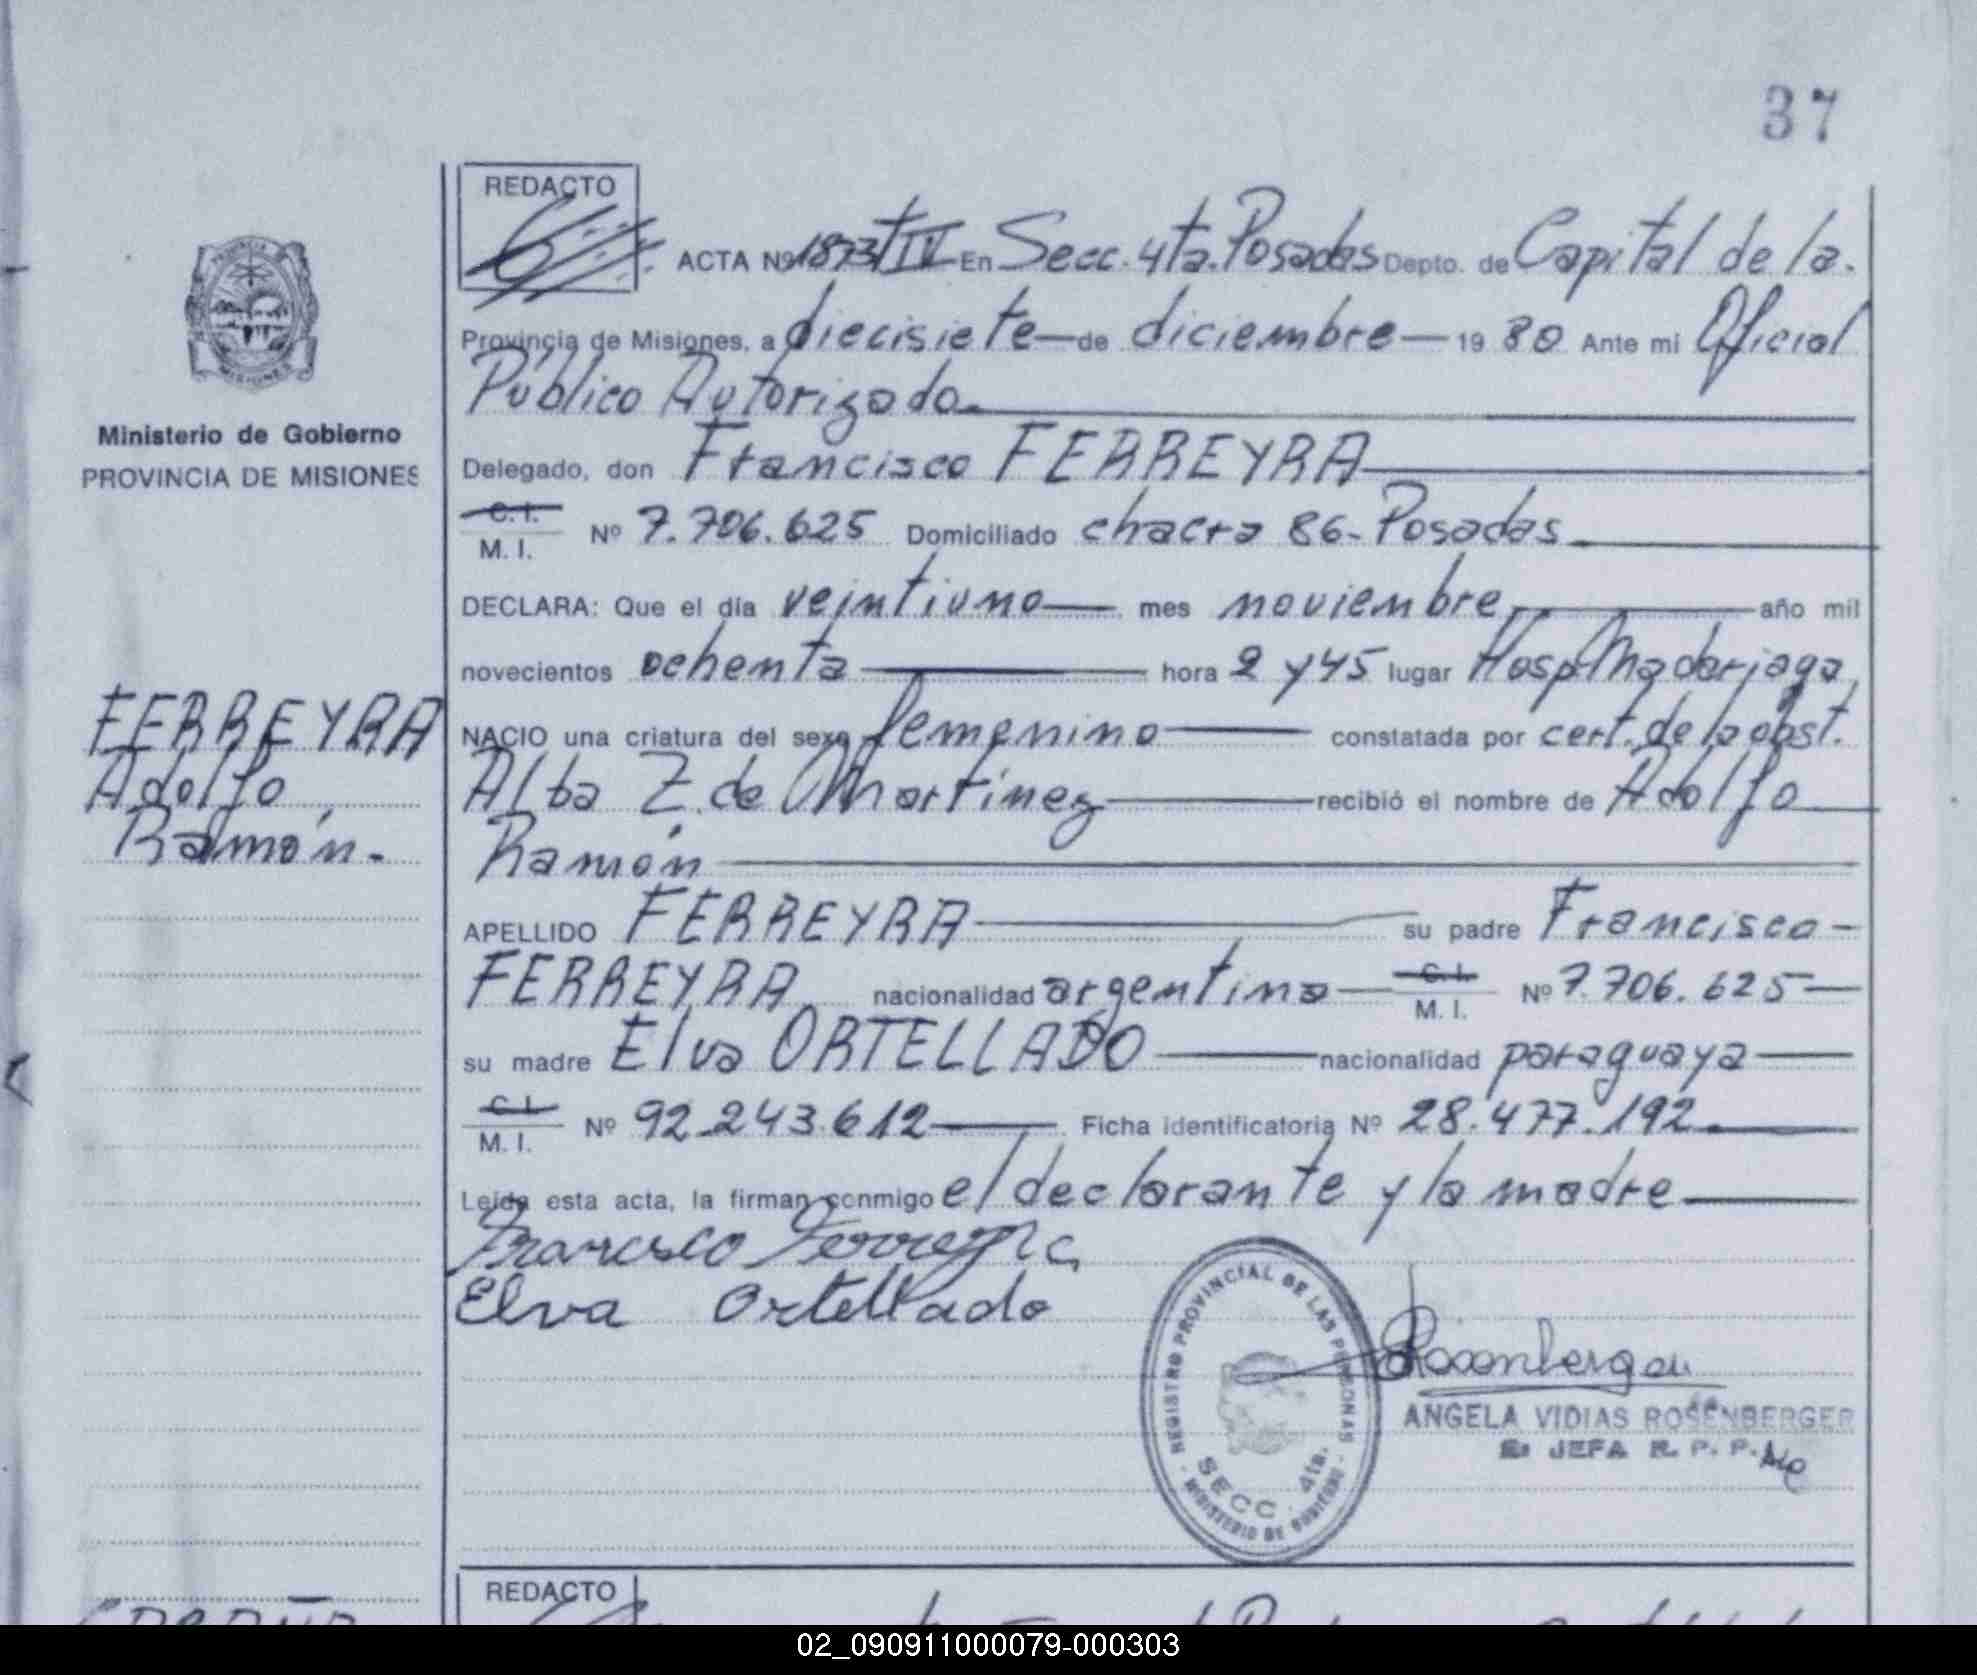 37
REDACTO
ACTA Nº 1873 T IV En Secc. 4ta. Posadas Depto. de Capital de la.
Provincia de Misiones, a diecisiete — de diciembre — 19 80 Ante mi Oficial
Público Autorizado.
Ministerio de Gobierno
PROVINCIA DE MISIONES
Delegado, don Francisco FERREYRA
C. I.
M. I. Nº 7.706.625 Domiciliado chacra 86- Posadas.
DECLARA: Que el día veintiuno — mes noviembre, — año mil
novecientos ochenta — hora 2 y 45 lugar Hosp. Madariaga
FERREYRA
Adolfo
Ramón.
NACIO una criatura del sexo femenino — constatada por cert. de la obst.
Alba Z. de Martinez — recibió el nombre de Adolfo
Ramón
APELLIDO FERREYRA — su padre Francisco -
FERREYRA nacionalidad argentina — C. I. M. I. Nº 7.706.625 —
su madre Elva ORTELLADO — nacionalidad paraguaya —
C. I.
M. I. Nº 92.243.612 — Ficha identificatoria Nº 28.477.192.
Leída esta acta, la firman conmigo el declarante y la madre
Francisco Ferreyra
Elva Ortellado
REGISTRO PROVINCIAL DE LAS PERSONAS
SECC. 4ta.
- MINISTERIO DE GOBIERNO -
Rosenberger
ANGELA VIDIAS ROSENBERGER
JEFA R. P. P.
REDACTO
02_090911000079-000303